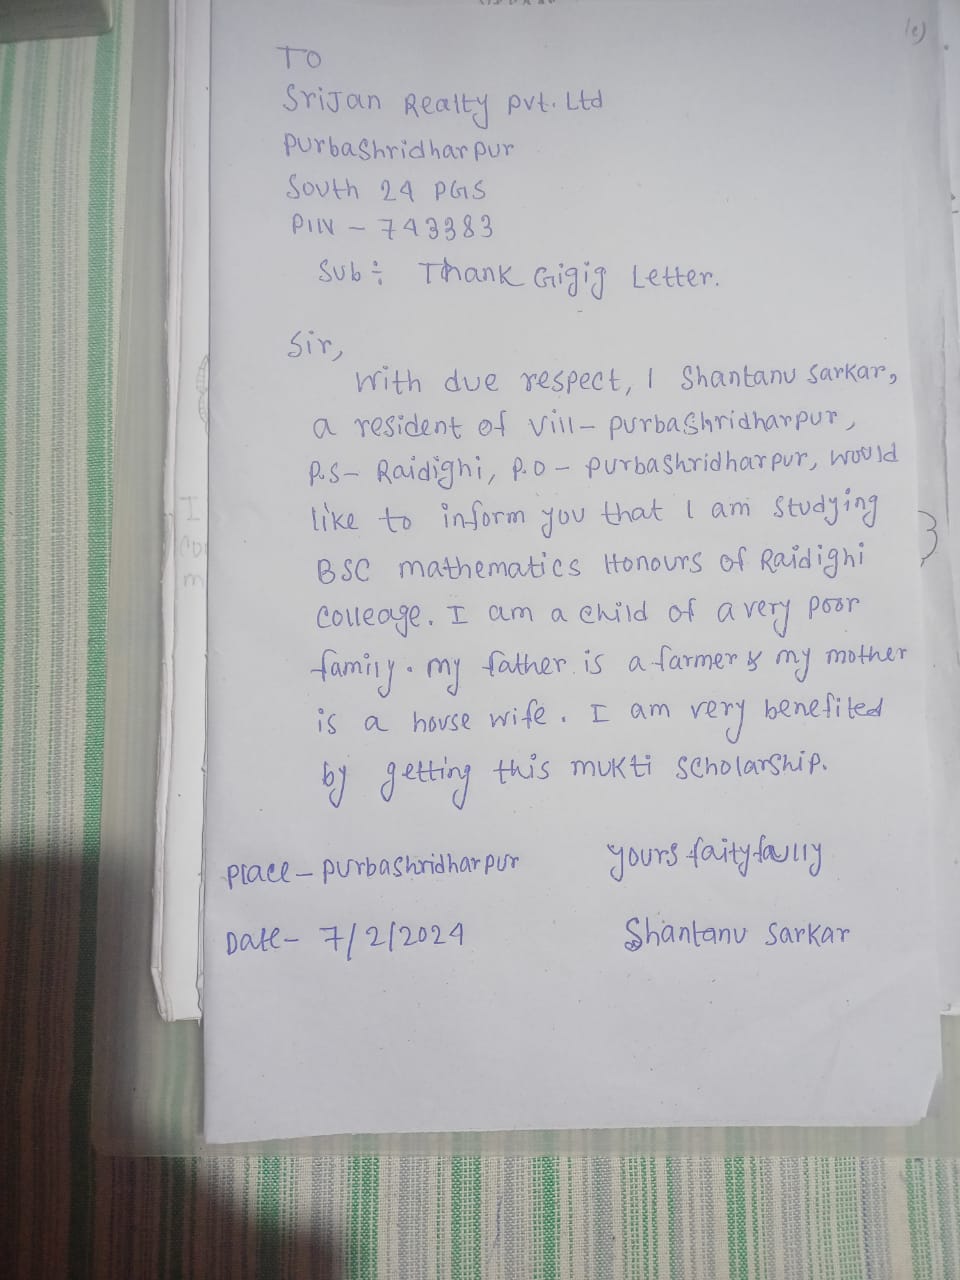 TO
Srijan Realty Pvt. Ltd
Purbashridharpur
South 24 PGS
PIN - 743383
Sub: Thank Gigig Letter.
Sir,
With due respect, I Shantanu Sarkar,
a resident of Vill- Purbashridharpur,
P.S- Raidighi, P.O - Purbashridharpur, would
like to inform you that I am Studying
BSC mathematics Honours of Raidighi
Colleage. I am a child of a very poor
family. my father is a farmer & my mother
is a house wife. I am very benefited
by getting this mukti Scholarship.
Place - Purbashridharpur
yours faityfaully
Date - 7/2/2024
Shantanu Sarkar